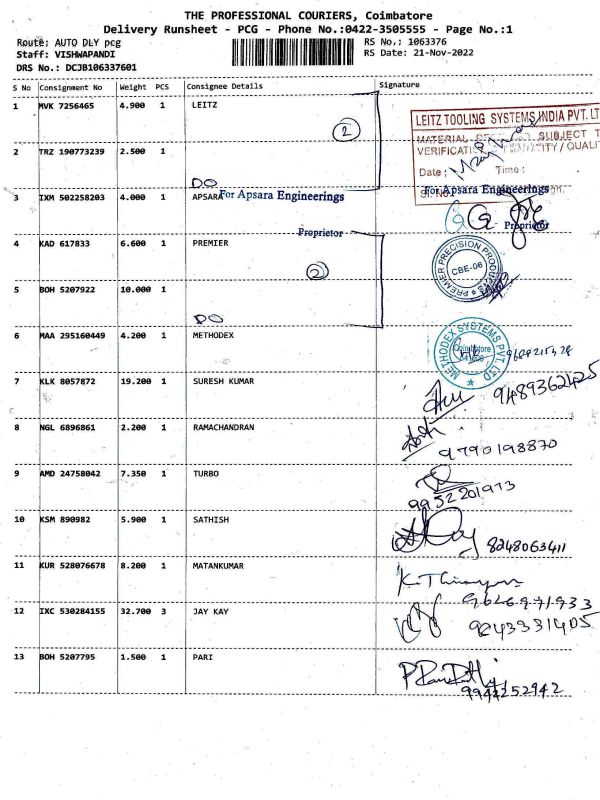 THE PROFESSIONAL COURIERS, Coimbatore
Delivery Runsheet - PCG - Phone No.:0422-3505555 - Page No.:1
Route; AUTO DLY pcg RS No.; 1063376
Staff: VISHWAPANDI RS Date: 21-Nov-2022
DRS No.: DCJB106337601
S No Consignment No Weight PCS Consignee Details Signature
1 MVK 7256465 4.900 1 LEITZ
LEITZ TOOLING SYSTEMS INDIA PVT. LT
2
MATERIAL SUBJECT T
2 TRZ 190773239 2.500 1
VERIFICATI TITY / QUALI
Date : Time :
DO
3 IXM 502258203 4.000 1 APSARA For Apsara Engineerings For Apsara Engineerings
Proprietor Proprietor
4 KAD 617833 6.600 1 PREMIER
PREMIER PRECISION PRODUCTS CBE-06
2
5 BOH 5207922 10.000 1
DO
6 MAA 295160449 4.200 1 METHODEX
METHODEX SYSTEMS PVT. LTD Coimbatore
7 KLK 8057872 19.200 1 SURESH KUMAR 9489362425
8 NGL 6896861 2.200 1 RAMACHANDRAN
9790198870
9 AMD 24758042 7.350 1 TURBO
9952201973
10 KSM 890982 5.900 1 SATHISH
8248063411
11 KUR 528076678 8.200 1 MATANKUMAR
9626971933
12 IXC 530284155 32.700 3 JAY KAY
9243331405
13 BOH 5207795 1.500 1 PARI
9942252942